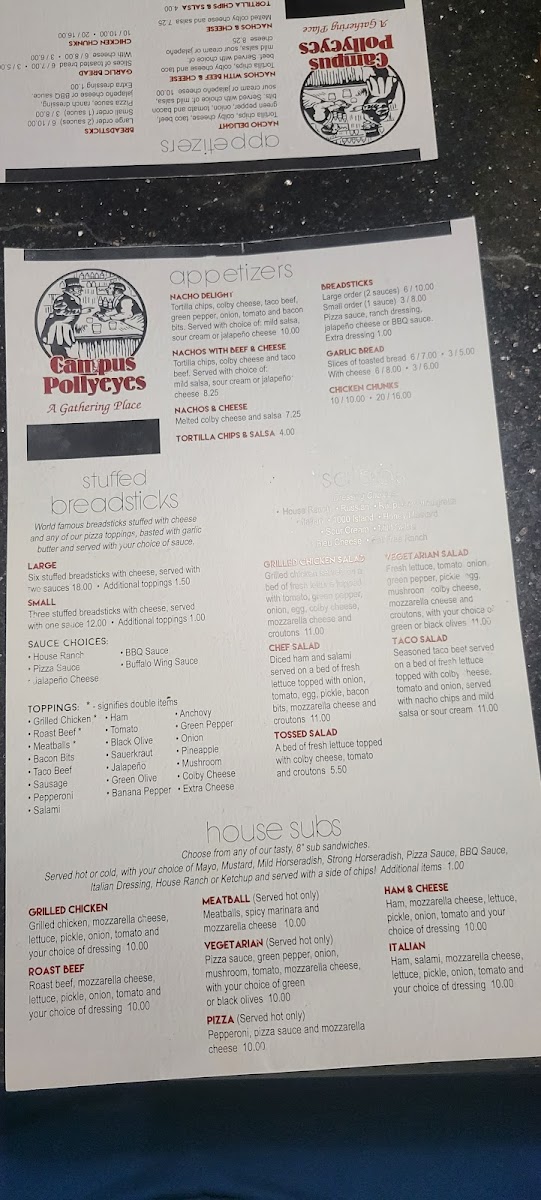 BREADSTICKS
Large order (2 sauces) 6 / 10.00
Small order (1 sauce) 3 / 8.00
Pizza sauce, ranch dressing,
jalapeño cheese or BBQ sauce.
Extra dressing 1.00
GARLIC BREAD
Slices of toasted bread 6 / 7.00 • 3 / 5.00
With cheese 6 / 8.00 • 3 / 6.00
CHICKEN CHUNKS
10 / 10.00 • 20 / 16.00
appetizers
NACHO DELIGHT
Tortilla chips, colby cheese, taco beef,
green pepper, onion, tomato and bacon
bits. Served with choice of: mild salsa,
sour cream or jalapeño cheese 10.00
NACHOS WITH BEEF & CHEESE
Tortilla chips, colby cheese and taco
beef. Served with choice of:
mild salsa, sour cream or jalapeño
cheese 8.25
NACHOS & CHEESE
Melted colby cheese and salsa 7.25
TORTILLA CHIPS & SALSA 4.00
Campus
Pollyeyes
A Gathering Place
Campus
Pollyeyes
A Gathering Place
appetizers
NACHO DELIGHT
Tortilla chips, colby cheese, taco beef,
green pepper, onion, tomato and bacon
bits. Served with choice of: mild salsa,
sour cream or jalapeño cheese 10.00
NACHOS WITH BEEF & CHEESE
Tortilla chips, colby cheese and taco
beef. Served with choice of:
mild salsa, sour cream or jalapeño
cheese 8.25
NACHOS & CHEESE
Melted colby cheese and salsa 7.25
TORTILLA CHIPS & SALSA 4.00
BREADSTICKS
Large order (2 sauces) 6 / 10.00
Small order (1 sauce) 3 / 8.00
Pizza sauce, ranch dressing,
jalapeño cheese or BBQ sauce.
Extra dressing 1.00
GARLIC BREAD
Slices of toasted bread 6 / 7.00 • 3 / 5.00
With cheese 6 / 8.00 • 3 / 6.00
CHICKEN CHUNKS
10 / 10.00 • 20 / 16.00
stuffed
breadsticks
World famous breadsticks stuffed with cheese
and any of our pizza toppings, basted with garlic
butter and served with your choice of sauce.
LARGE
Six stuffed breadsticks with cheese, served with
two sauces 18.00 • Additional toppings 1.50
SMALL
Three stuffed breadsticks with cheese, served
with one sauce 12.00 • Additional toppings 1.00
SAUCE CHOICES:
• House Ranch
• Pizza Sauce
• Jalapeño Cheese
• BBQ Sauce
• Buffalo Wing Sauce
TOPPINGS: * - signifies double items
• Grilled Chicken *
• Roast Beef *
• Meatballs *
• Bacon Bits
• Taco Beef
• Sausage
• Pepperoni
• Salami
• Ham
• Tomato
• Black Olive
• Sauerkraut
• Jalapeño
• Green Olive
• Banana Pepper
• Anchovy
• Green Pepper
• Onion
• Pineapple
• Mushroom
• Colby Cheese
• Extra Cheese
• House Ranch
Island
Mustard
Ranch
GRILLED CHICKEN SALAD
Grilled chicken
bed of fresh lettuce topped
with tomato, green pepper,
onion, egg, colby cheese,
mozzarella cheese and
croutons 11.00
CHEF SALAD
Diced ham and salami
served on a bed of fresh
lettuce topped with onion,
tomato, egg, pickle, bacon
bits, mozzarella cheese and
croutons 11.00
TOSSED SALAD
A bed of fresh lettuce topped
with colby cheese, tomato
and croutons 5.50
VEGETARIAN SALAD
Fresh lettuce, tomato, onion,
green pepper, pickle, egg,
mushroom, colby cheese,
mozzarella cheese and
croutons, with your choice of
green or black olives 11.00
TACO SALAD
Seasoned taco beef served
on a bed of fresh lettuce
topped with colby cheese,
tomato and onion, served
with nacho chips and mild
salsa or sour cream 11.00
house subs
Choose from any of our tasty, 8" sub sandwiches.
Served hot or cold, with your choice of Mayo, Mustard, Mild Horseradish, Strong Horseradish, Pizza Sauce, BBQ Sauce,
Italian Dressing, House Ranch or Ketchup and served with a side of chips! Additional items 1.00
GRILLED CHICKEN
Grilled chicken, mozzarella cheese,
lettuce, pickle, onion, tomato and
your choice of dressing 10.00
ROAST BEEF
Roast beef, mozzarella cheese,
lettuce, pickle, onion, tomato and
your choice of dressing 10.00
MEATBALL (Served hot only)
Meatballs, spicy marinara and
mozzarella cheese 10.00
VEGETARIAN (Served hot only)
Pizza sauce, green pepper, onion,
mushroom, tomato, mozzarella cheese,
with your choice of green
or black olives 10.00
PIZZA (Served hot only)
Pepperoni, pizza sauce and mozzarella
cheese 10.00
HAM & CHEESE
Ham, mozzarella cheese, lettuce,
pickle, onion, tomato and your
choice of dressing 10.00
ITALIAN
Ham, salami, mozzarella cheese,
lettuce, pickle, onion, tomato and
your choice of dressing 10.00